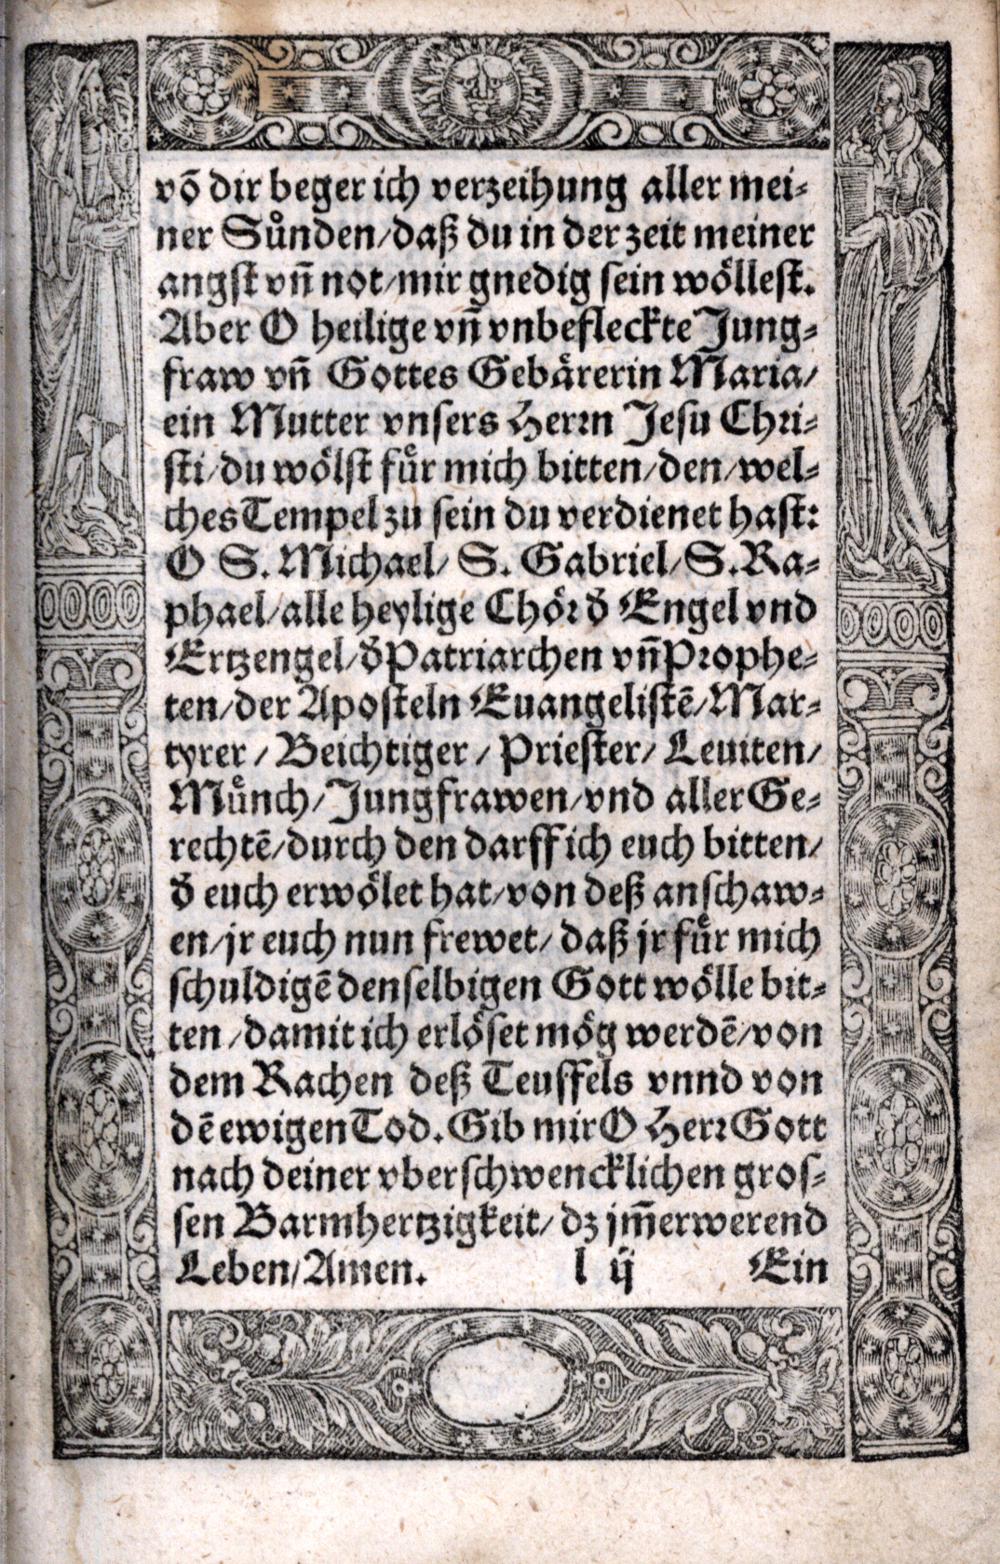 võ dir beger ich verzeihung aller mei⸗
ner Suͤnden/daß du in der zeit meiner
angst vñ not/mir gnedig sein woͤllest.
Aber O heilige vñ vnbefleckte Jung⸗
fraw vñ Gottes Gebaͤrerin Maria/
ein Mutter vnsers Herrn Jesu Chri⸗
sti/du woͤlst fuͤr mich bitten/den/wel⸗
ches Tempel zu sein du verdienet hast:
O S. Michael/ S. Gabriel/S. Ra⸗
phael/alle heylige Choͤr d̕ Engel vnd
Ertzengel/d̕ Patriarchen vñ Prophe⸗
ten/der Aposteln Euangelistẽ/Mar⸗
tyrer/Beichtiger/Priester/Leuiten/
Muͤnch/Jungfrawen/vnd aller Ge⸗
rechtẽ/durch den darff ich euch bitten/
d̕ euch erwoͤlet hat/von deß anschaw⸗
en/jr euch nun frewet/daß jr fuͤr mich
schuldigẽ denselbigen Gott woͤlle bit⸗
ten/damit ich erloͤset moͤg werdẽ/von
dem Rachen deß Teuffels vnnd von
dẽ ewigen Tod. Gib mir O Herr Gott
nach deiner vberschwencklichen gros⸗
sen Barmhertzigkeit/dz jm̃erwerend
Leben/Amen. l ij Ein